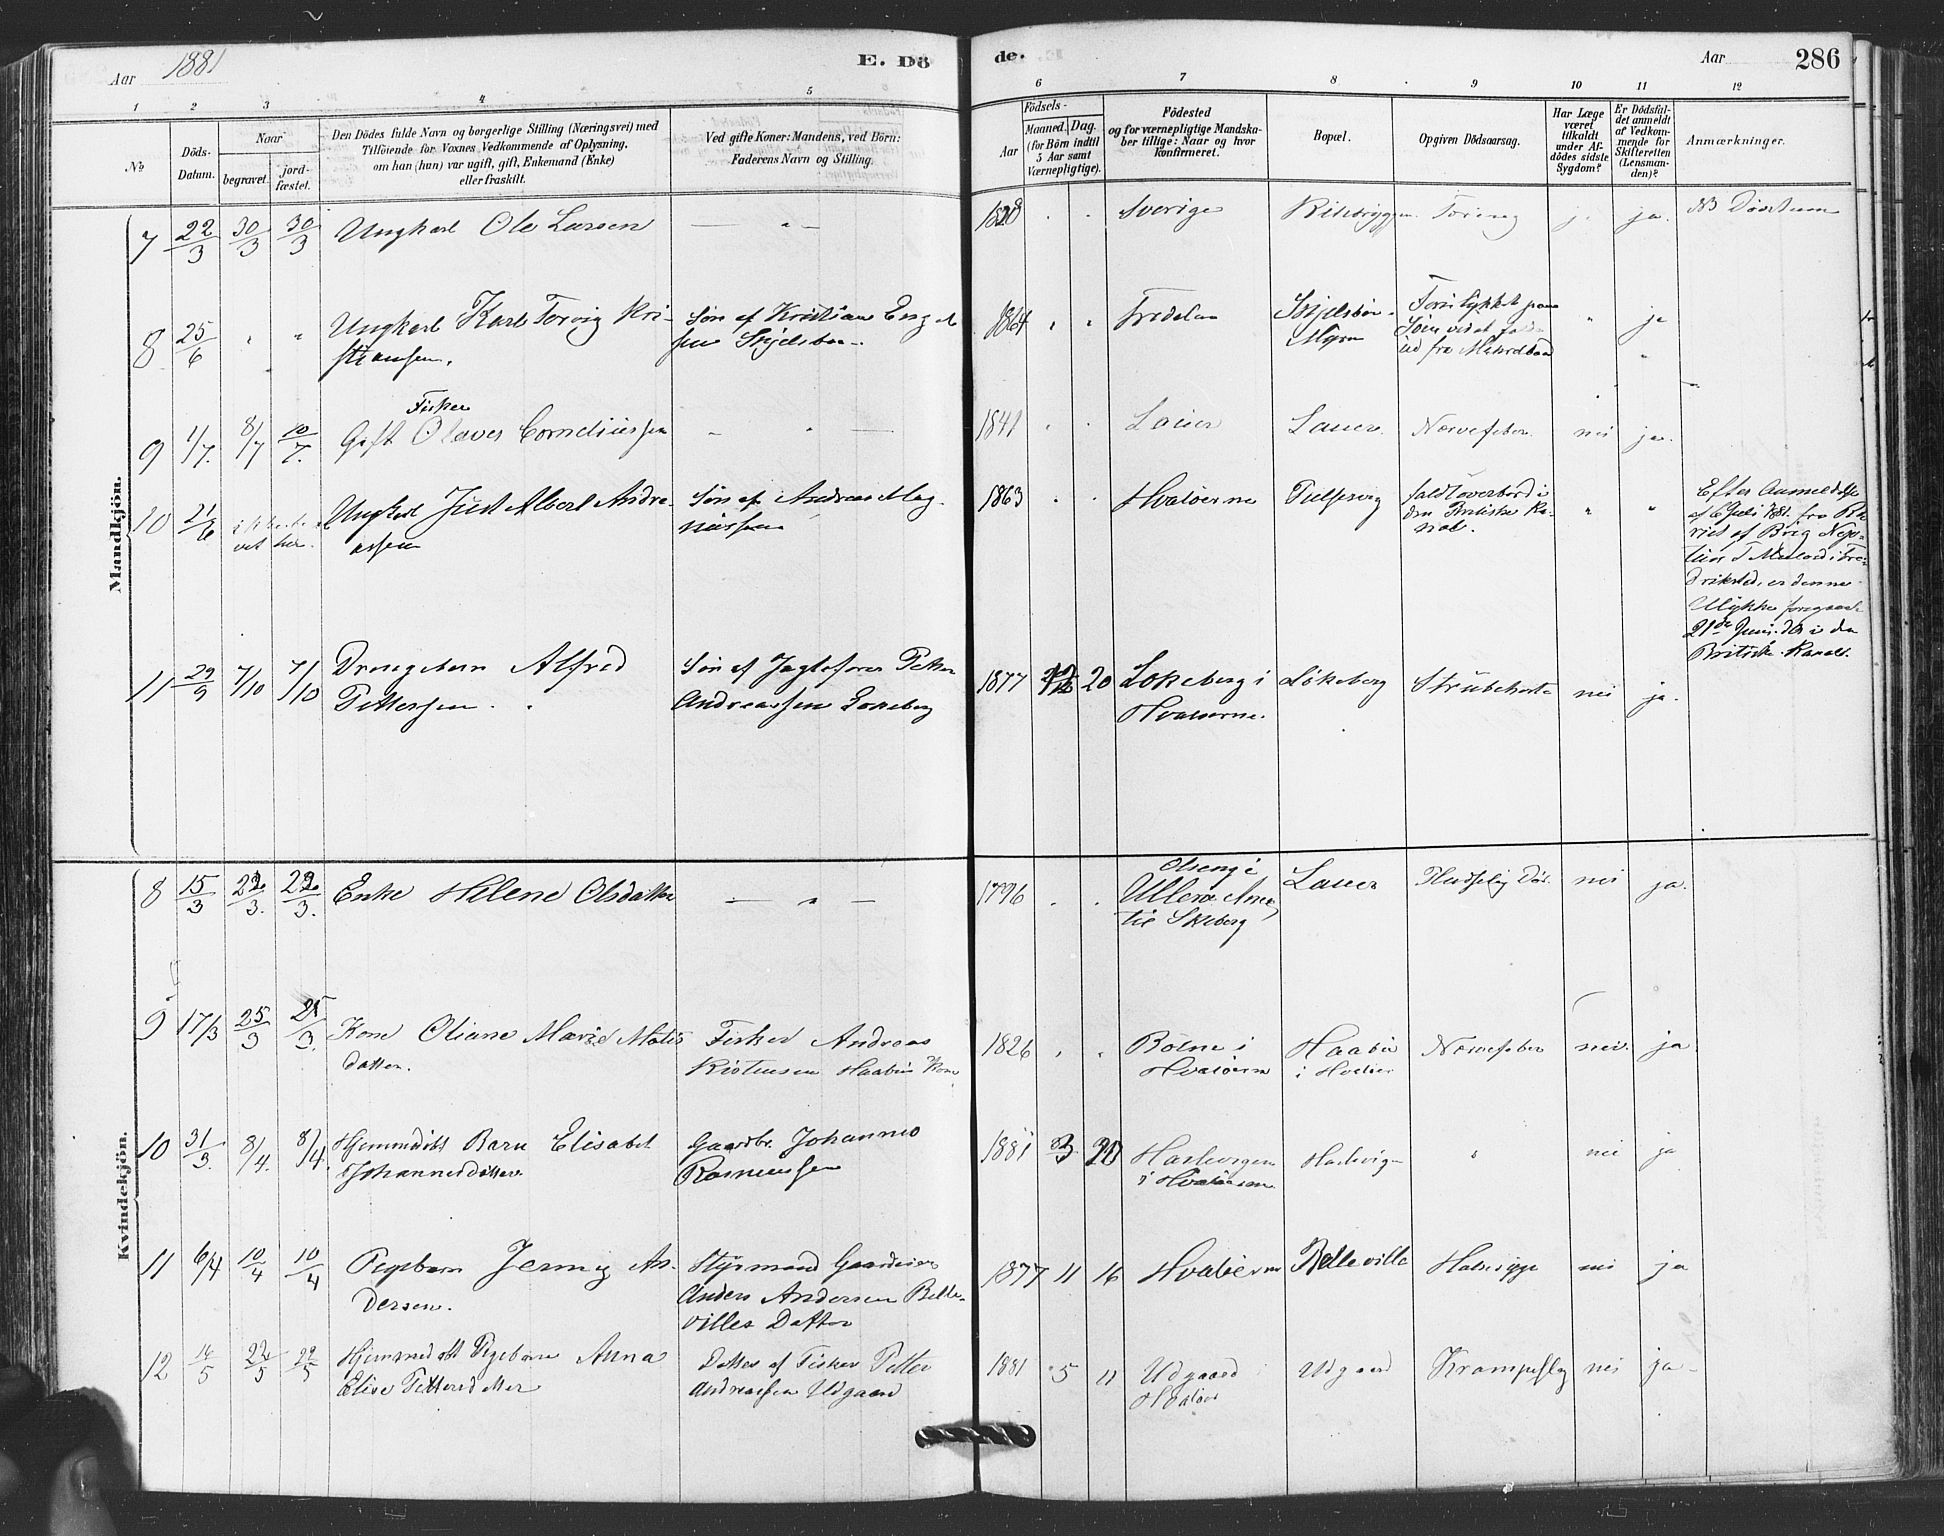 Aar 1881 E. Dö
de. Aar 286
1 2 3 4 5
6 7 8 9 10 11 12
No
Döds-
Datum.
Naar
begravet.
jord-
fæstet.
Den Dödes fulde Navn og borgerlige Stilling (Næringsvei) med
Tilföiende for Voxnes Vedkommende af Oplysning,
om han (hun) var ugift, gift, Enkemand (Enke)
eller fraskilt.
Ved gifte Koner: Mandens, ved Börn:
Faderens Navn og Stilling.
Födsels-
Aar
Maaned. Dag.
(for Börn indtil
5 Aar samt
Værnepligtige).
Födested
og for værnepligtige Mandska-
ber tillige: Naar og hvor
konfirmeret.
Bopæl.
Opgiven Dödsaarsag.
Har Læge
været
tilkaldt
under Af-
dödes sidste
Sygdom?
Er Dödsfal-
det anmeldt
af Vedkom-
mende for
Skifteretten
(Lensman-
den)?
Anmærkninger.
Mandkjön.
7 22/3 30/3 30/3 Ungkarl Ole Larsen — " — 1828 Sverige ja.
8 25/6 " " Ungkarl Karl Torvig Kri-
stiansen.
Søn af Kristian Eng
sen
1864 " " ja
9 1/7. 8/7 10/7. Fisker
Gift Olaves Corneliussen
1841 Lauer Lauer Nervefeber nei ja.
10 21/6 Ungkarl Just Albert Andre-
assen
Søn af Andreas Mag
nussen
1863 Hvaløerne faldt overbord i
den Britiske Ka-
nal.
" "
Efter Anmeldelse
af 6 Juli 1881 fra
af Brig
i Fre-
drikstad, er denne
Ulykke foregaaet
21de Juni d.A i den
Britiske Kanal.
11 29/9 7/10 7/10 Drengebarn Alfred
Pettersen.
Søn af Petter
Andreassen
1877 12 20 Løkeberg i
Hvaløerne.
Løkeberg Strubehoste nei ja.
Kvindekjön.
8 15/3 22/3. 22/3. Enke Helene Olsdatter — " — 1796 . .
til Skeberg
Lauer Pludselig Død. nei ja.
9 17/3 25/3 25/3. Kone Oliane Marie
datter.
Fisker Andreas
Kristensen Kone
1826 " "
i Hvaløerne
i Hvaløer
Nervefeber nei. ja
10 31/3. 8/4. 8/4. Hjemmedøbt Barn Elisabet
Johannesdatter
Gaardbr. Johannes
Rasmussen
1881 3. 20
i Hvaløerne
" nei ja
11 6/4 10/4 10/4 Pigebarn Jenny An-
dersen.
Styrmand Gaardeier
Anders Andersen Belle-
villes Datter
1877 11 16 Hvaløerne Belleville Halssyge nei ja
12 5 22/5 22/5 Hjemmedøbt Pigebarn Anna
Elise Pettersdatter
Datter af Fisker Petter
Andreassen Udgaard
1881 5 11 Udgaard
Hvaløer
Udgaard nei ja